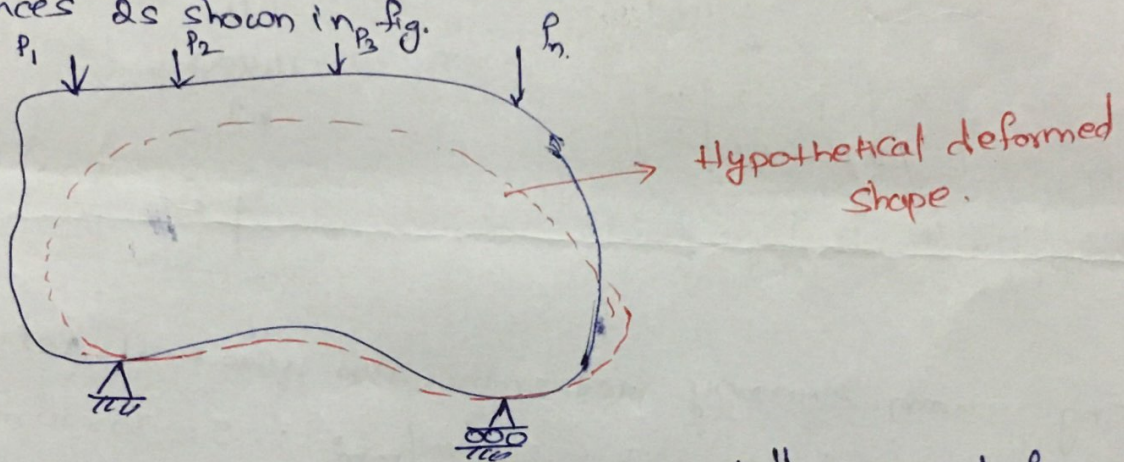 nces as shown in fig.
P1
P2
P3
Pn.
Hypothetical deformed
shape.